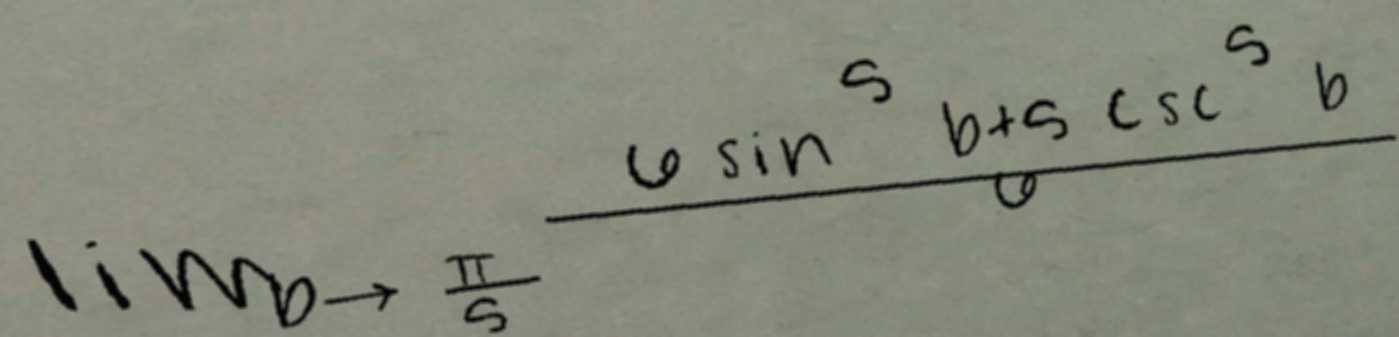 lim_{b \to \frac{\pi}{5}} \frac{6 \sin^5 b+5 \csc^5 b}{6}